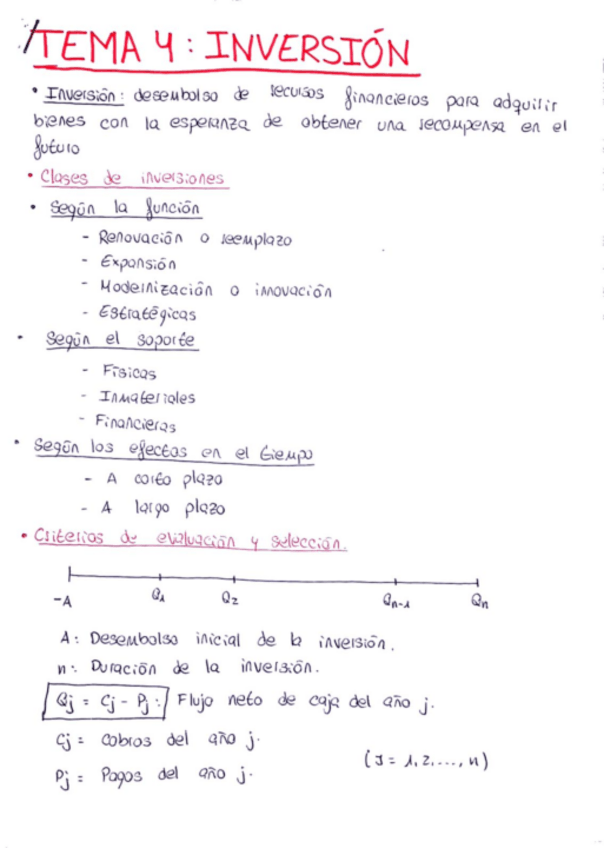 TEMA 4: INVERSIÓN
• Inversión: desembolso de recursos financieros para adquirir
bienes con la esperanza de obtener una recompensa en el
futuro
• Clases de inversiones
• Según la función
- Renovación o reemplazo
- Expansión
- Modernización o innovación
- Estratégicas
• Según el soporte
- Físicas
- Inmateriales
- Financieras
• Según los efectos en el tiempo
- A corto plazo
- A largo plazo
• Criterios de evaluación y selección.
-A Q1 Q2 Qn-1 Qn
A: Desembolso inicial de la inversión.
n: Duración de la inversión.
Qj = Cj - Pj: Flujo neto de caja del año j.
Cj = cobros del año j.
(J = 1, 2, ..., n)
Pj = Pagos del año j.